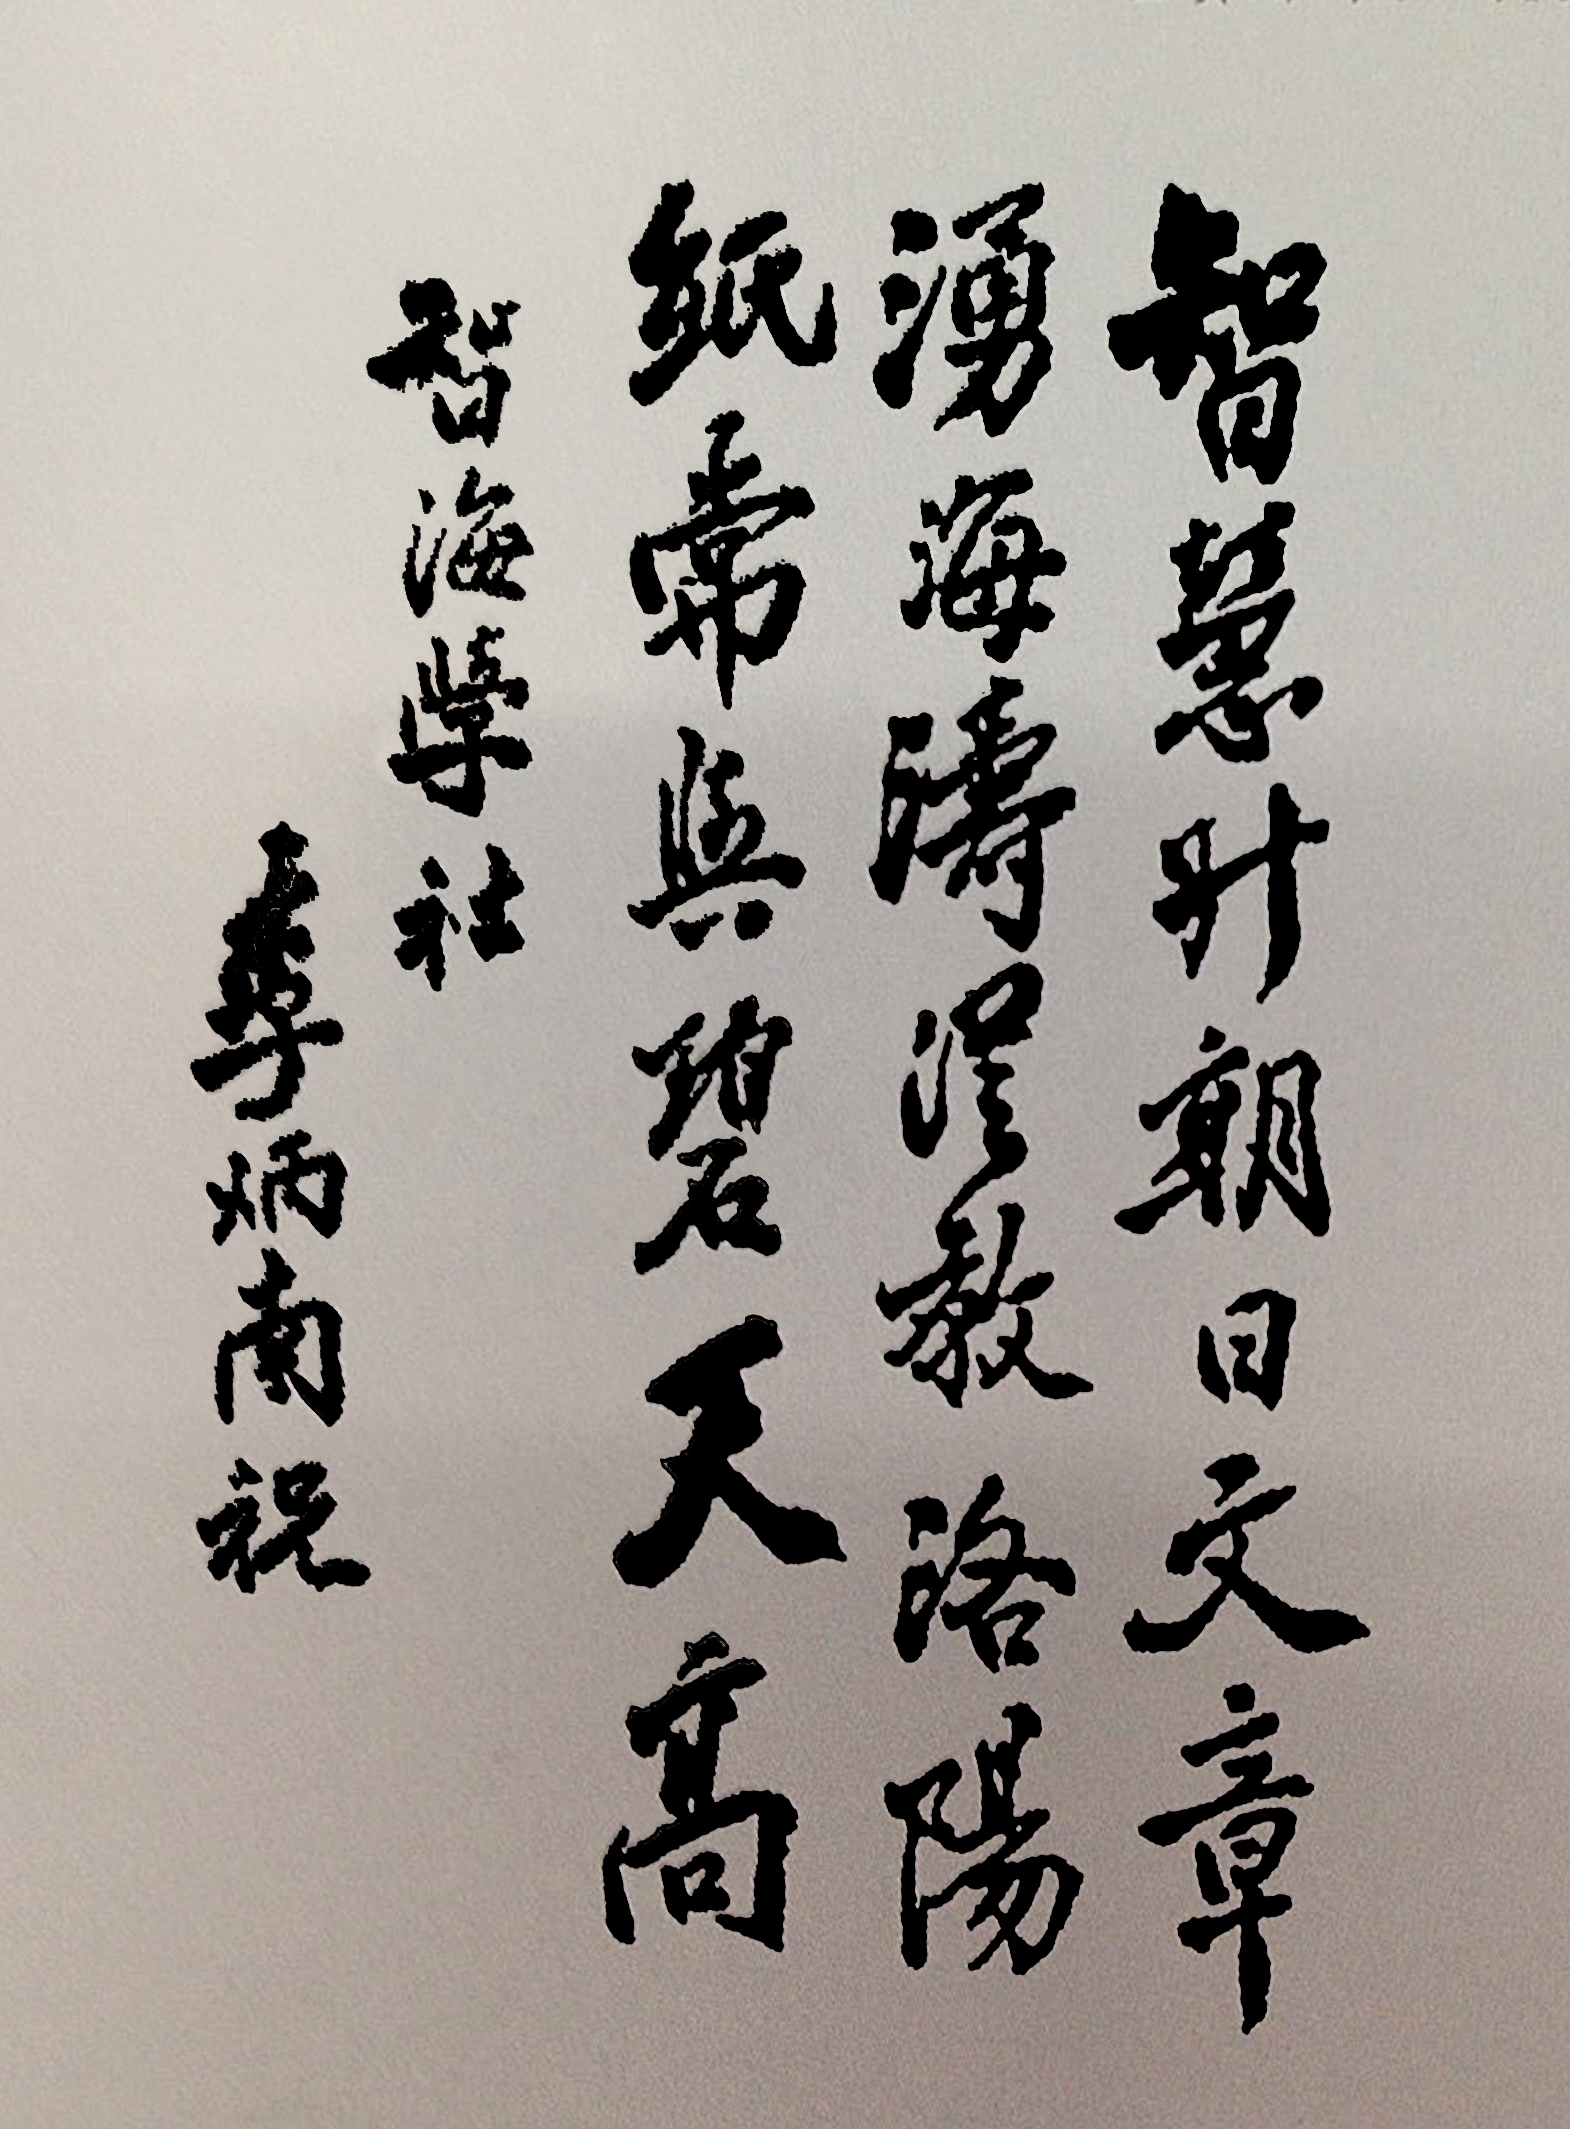 智慧升朝日文章
湧海濤從教洛陽
紙常與碧天高
智海學社
李炳南祝